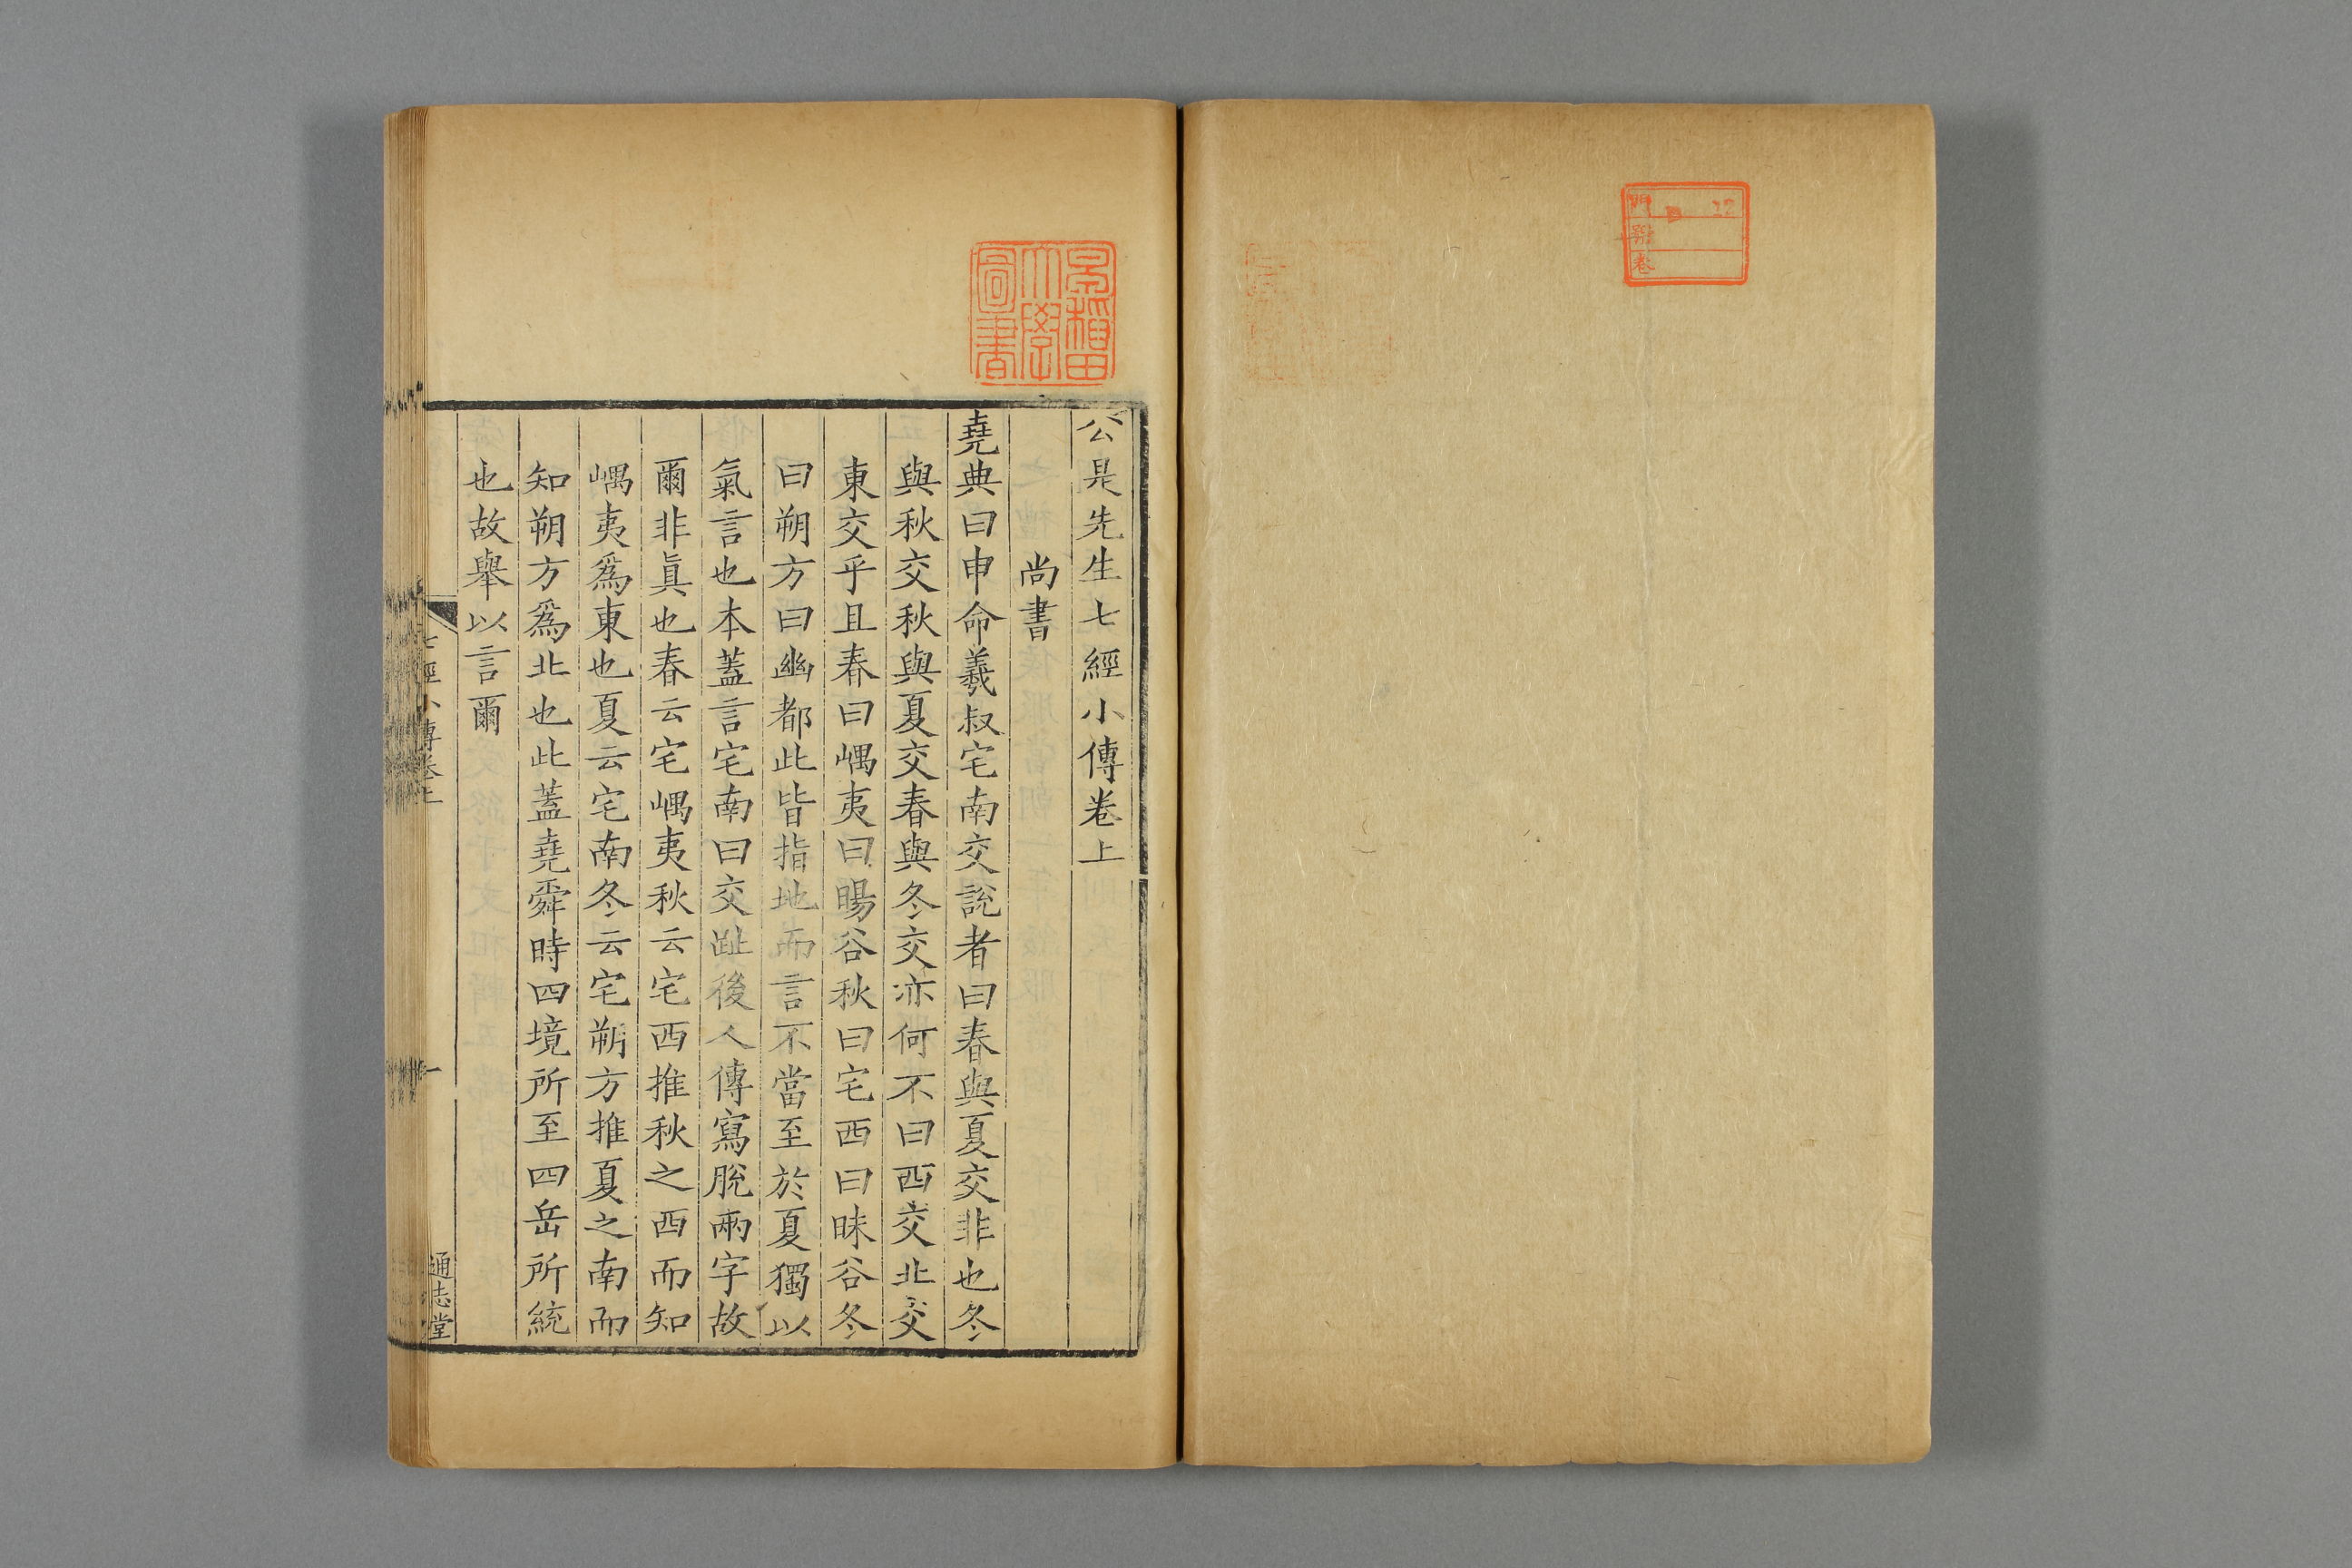 門
号
卷
早稲田
大學
圖書
公是先生七經小傳卷上
尚書
堯典曰申命羲叔宅南交說者曰春與夏交非也冬
與秋交秋與夏交春與冬交亦何不曰西交北交
東交乎且春曰嵎夷曰暘谷秋曰宅西曰昧谷冬
曰朔方曰幽都此皆指地而言不當至於夏獨以
氣言也本蓋言宅南曰交趾後人傳寫脫兩字故
爾非眞也春云宅嵎夷秋云宅西推秋之西而知
嵎夷爲東也夏云宅南冬云宅朔方推夏之南而
知朔方爲北也此蓋堯舜時四境所至四岳所統
也故舉以言爾
七經小傳卷上
一
通志堂